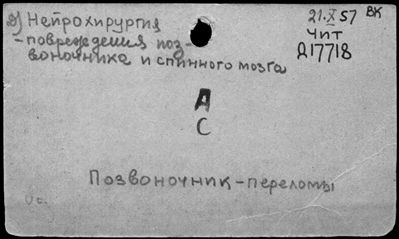 2) Нейрохирургия
- повреждения поз-
воночника и спинного мозга
21.X 57 ВК
Чит
Д17718
А
С
Позвоночник - переломы